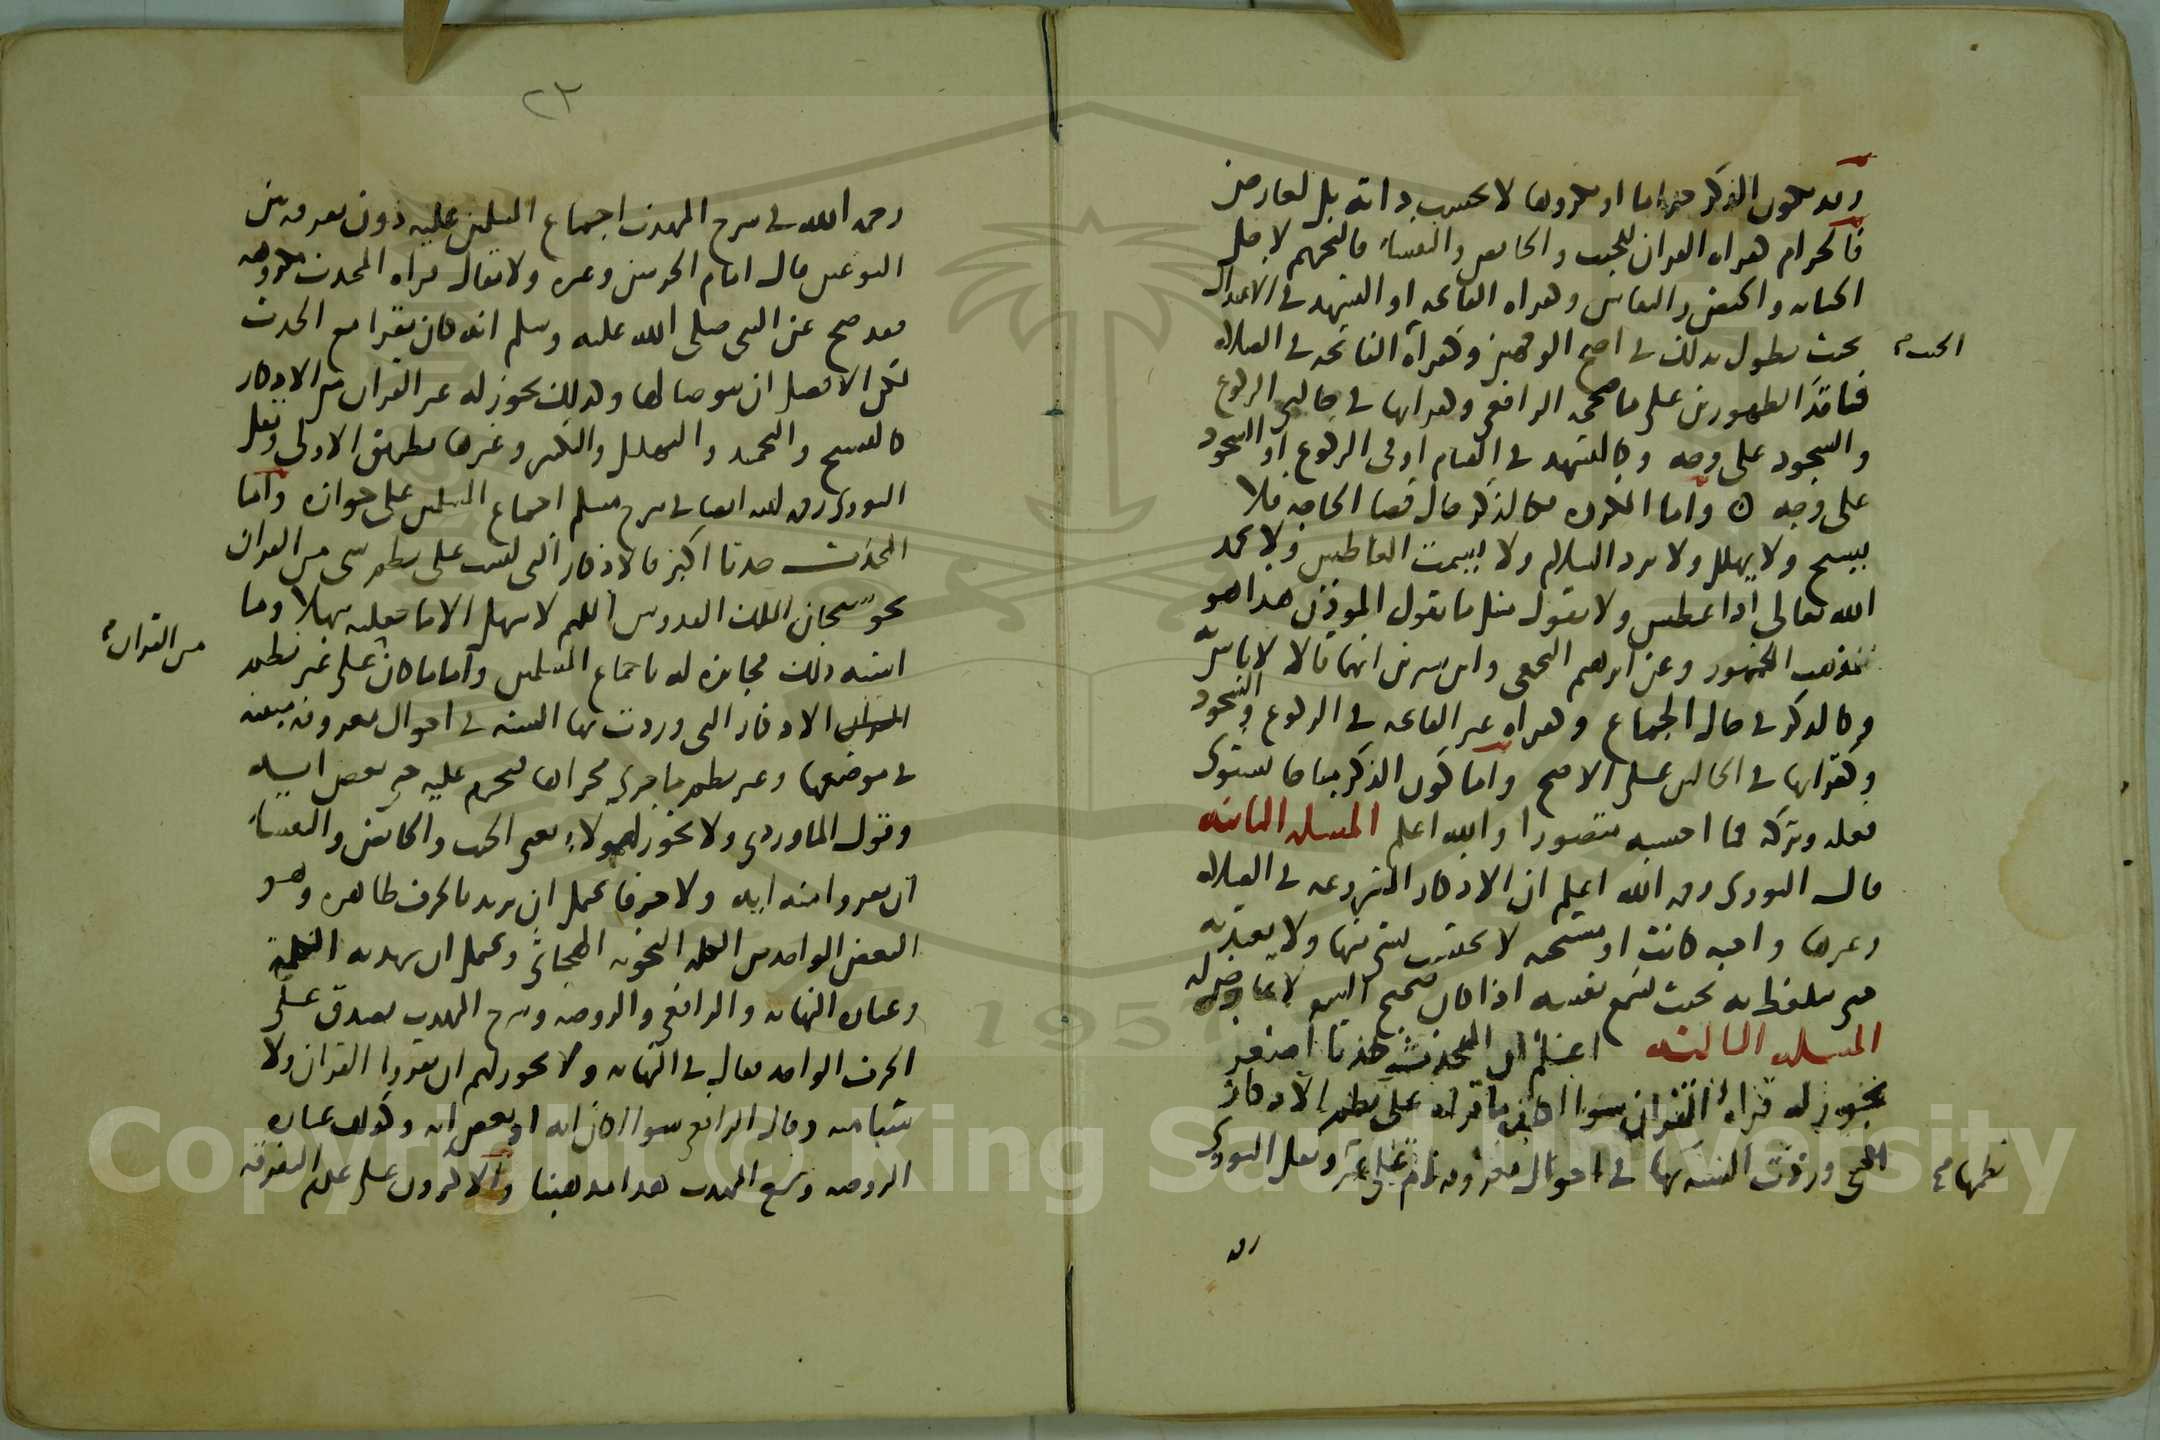 وقد يكون الذكر حراما او مكروها لا بحسب ذاته بل لعارض
فالحرام قراه القران للجنب والحائض والنفساء فالتحريم لاجل
الجنابه والحيض والنفاس وقراه الفاتحه او التشهد في الاعتدال
بحيث يطول بذلك في اصح الوجهين وقراة الفاتحه في الصلاه
الجنب
لفاقد الطهورين على ما صححه الرافعي وقراتها في حالتي الركوع
والسجود على وجه وكالتشهد في القيام او في الركوع او السجود
على وجه واما المكروه فكالذكر حال قضا الحاجه فلا
يسبح ولا يهلل ولا يرد السلام ولا يشمت العاطس ولا يحمد
الله تعالى اذا عطس ولا يقول مثل ما يقول الموذن هذا هو
مذهب الجمهور وعن ابرهيم النخعي وابن سيرين انهما قالا لا باس به
وكالذكر في حال الجماع وقراه غير الفاتحه في الركوع والسجود
وكقراتها في الحالين على الاصح واما كون الذكر مباحا يستوى
فعله وتركه فما احسبه متصورا والله اعلم المسله الثانيه
قال النووى رحمه الله اعلم ان الاذكار المشروعه في الصلاه
وغيرها واجبه كانت او مستحبه لا يحتسب بشي منها ولا يعتد به
حتى يتلفظ به بحيث يسمع نفسه اذا كان صحيح السمع لا عارض له
المسله الثالثه اعلم ان المحدث حدثا اصغر
يجوز له قراة القران سوا كان ما قراه على نظم الاذكار
التي وردت السنه بها في احوال معروفه ام على غير ونقل النووى
نظمها
رحمه
٢٣
رحمه الله في شرح المهذب اجماع المسلمين عليه دون معرفه من
النوعين قال امام الحرمين وغيره ولا يقال قراه المحدث مكروهه
فقد صح عن النبي صلى الله عليه وسلم انه كان يقرا مع الحدث
لكن الافضل ان يتوضا لها وكذلك يجوز له غير القران من الاذكار
كالتسبيح والتحميد والتهليل والتكبير وغيرها بطريق الاولى ونقل
النووى رحمه الله ايضا في شرح مسلم اجماع المسلمين على جوازه واما
المحدث حدثا اكبر فالاذكار التي ليست على نظم شي من القران
نحو سبحان الملك القدوس اللهم لا سهل الا ما جعلته سهلا وما
اشبه ذلك فجائزه له باجماع المسلمين واما ما كان على غير نظم
من القران
الاذكار التي وردت بها السنه في احوال معروفه مبينه
في موضعها وغير نظم ما جرى مجراها فيحرم عليه حتى بعض ايه
وقول الماوردي ولا يجوز لهولاء يعني الجنب والحائض والنفساء
ان يقروا منه ايه ولا حرفا يحتمل ان يريد بالحرف ظاهره وهو
البعض الواحد من الكلمه الهجائي ويحتمل ان يريد به الكلمة
وعباره النهايه والرافعي والروضه وشرح المهذب يصدق على
الحرف الواحد فقال في النهايه ولا يجوز لهم ان يقروا القران ولا
شيا منه وقال الرافعي سوا كان ايه او بعض ايه وكذلك عباره
الروضه وشرح المهذب هذا مذهبنا والاكثرون على عدم التفرقه